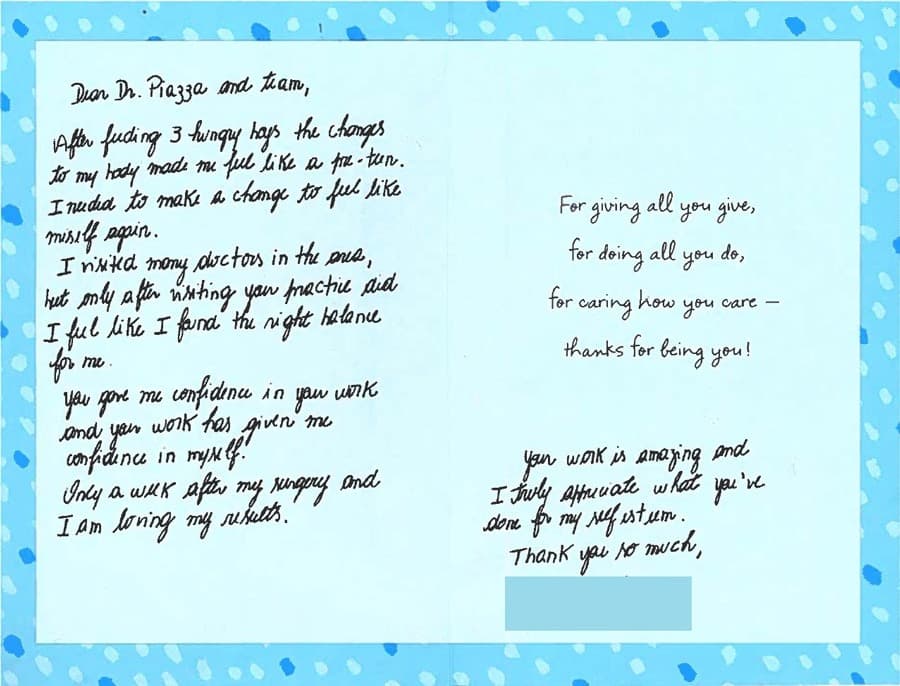 Dear Dr. Piazza and team,
After feeding 3 hungry boys the changes
to my body made me feel like a pre-teen.
I needed to make a change to feel like
myself again.
I visited many doctors in the area,
but only after visiting your practice did
I feel like I found the right balance
for me.
You gave me confidence in your work
and your work has given me
confidence in myself.
Only a week after my surgery and
I am loving my results.
For giving all you give,
for doing all you do,
for caring how you care —
thanks for being you!
Your work is amazing and
I truly appreciate what you've
done for my self esteem.
Thank you so much,